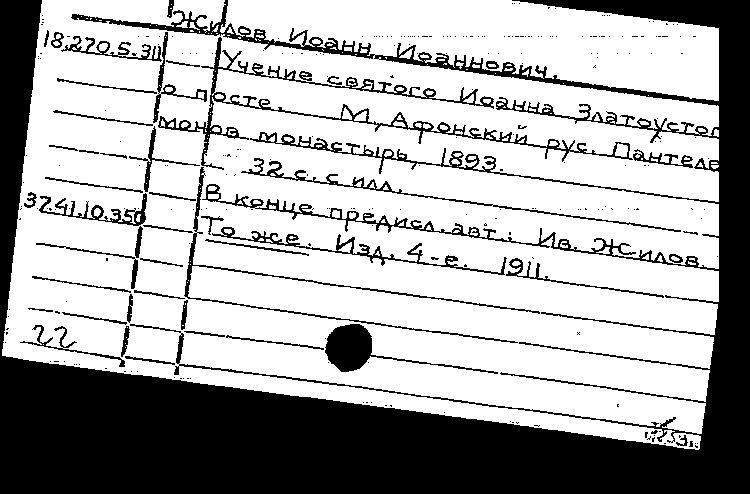 Жилов, Иоанн Иоаннович.
18.270.5.311
Учение святого Иоанна Златоустог
о посте. М., Афонский рус. Пантеле
монов монастырь, 1893.
32 с. с илл.
В конце предисл. авт.: Ив. Жилов.
37.41.10.350
То же. Изд. 4-е. 1911.
22